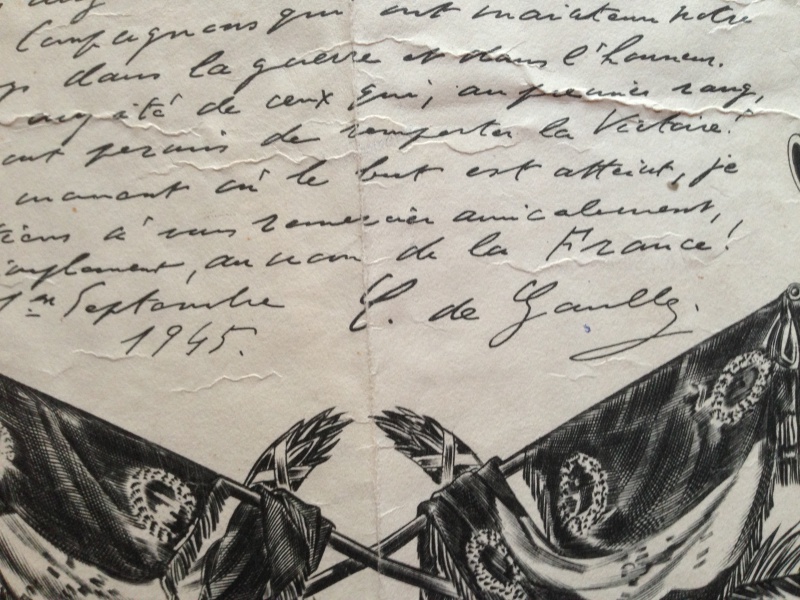 Compagnons qui ont maintenu notre
dans la guerre et dans l'honneur.
été de ceux qui, au premier rang,
ont permis de remporter la Victoire!
moment où le but est atteint, je
tiens à vous remercier amicalement,
simplement, au nom de la France!
1er Septembre C. de Gaulle.
1945.